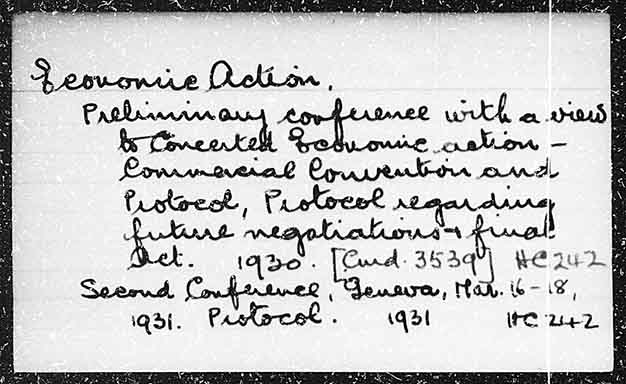 Economic Action.
Preliminary conference with a view
to Concerted Economic action -
Commercial Convention and
Protocol, Protocol regarding
future negotiations & final
Act. 1930. [Cmd. 3539] HC 242
Second Conference, Geneva, Mar. 16-18,
1931. Protocol. 1931 HC 242